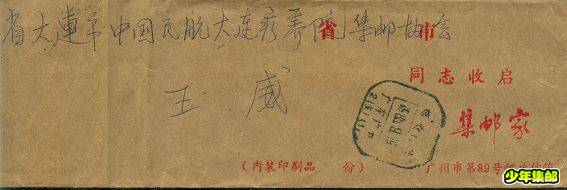 省大連市中国民航大连疗养院集邮协会
省 市
王威
同志收启
集邮家
(内装印刷品 份) 广州市第89号
少年集邮